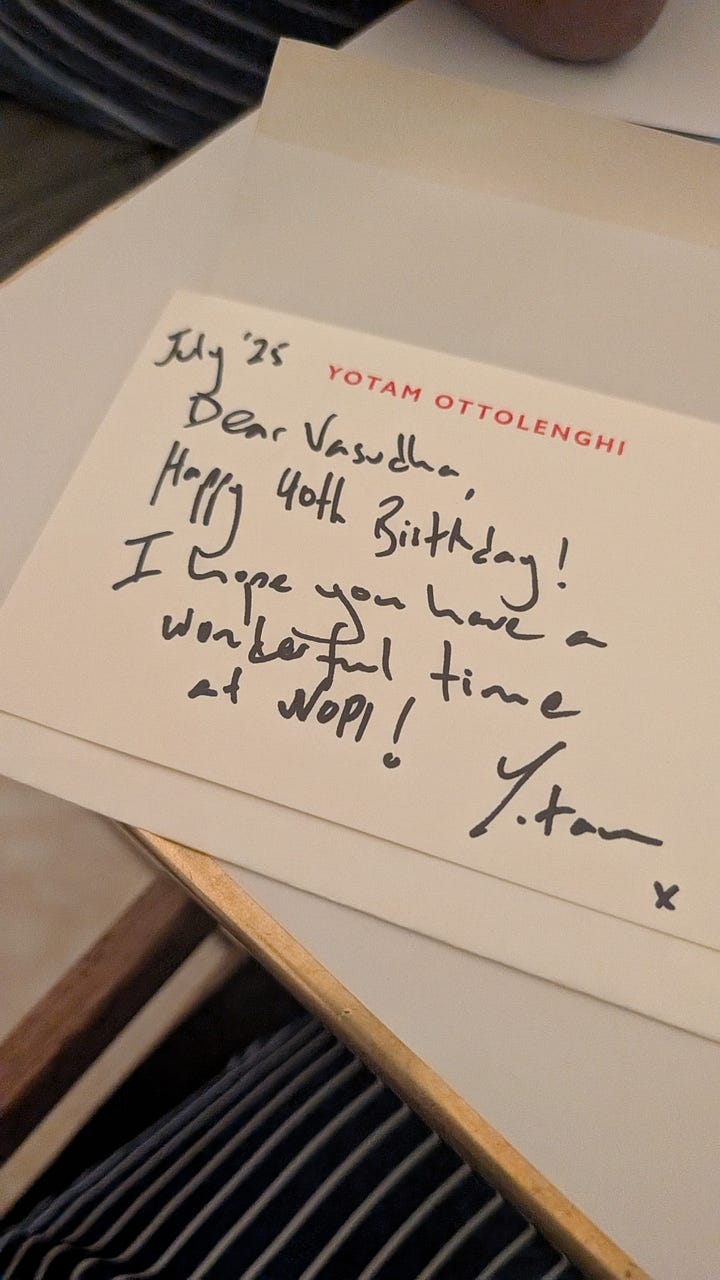 July '25
YOTAM OTTOLENGHI
Dear Vasudha,
Happy 40th Birthday!
I hope you have a
wonderful time
at NOPI!
Yotam
x